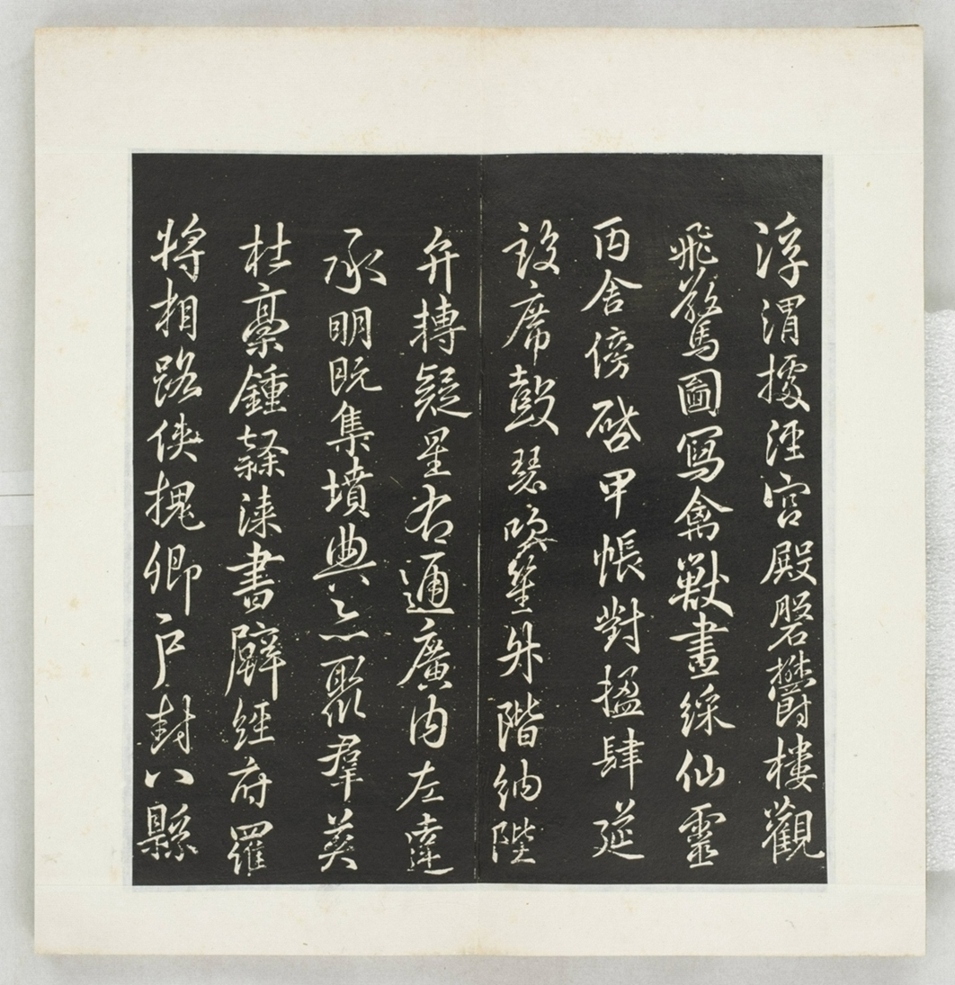 浮渭據涇宮殿磐欝樓觀
飛驚圖寫禽獸畫綵仙靈
丙舍傍啓甲帳對楹肆筵
設席鼓瑟吹笙升階納陛
弁轉疑星右通廣內左達
承明既集墳典亦聚群英
杜稾鍾隸漆書壁經府羅
將相路俠槐卿戶封八縣